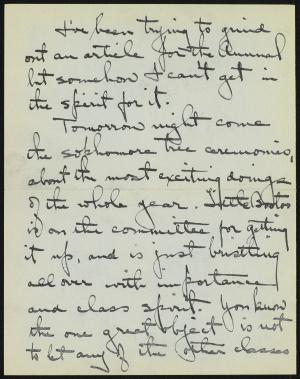 I've been trying to grind
out an article for the Annual
but somehow I can't get in
the spirit for it.
Tomorrow night come
the sophomore tree ceremonies,
about the most exciting doings
of the whole year. Little Bootes
is on the committee for getting
it up, and is just bristling
all over with importance
and class spirit. You know
the one great object is not
to let any of the other classes